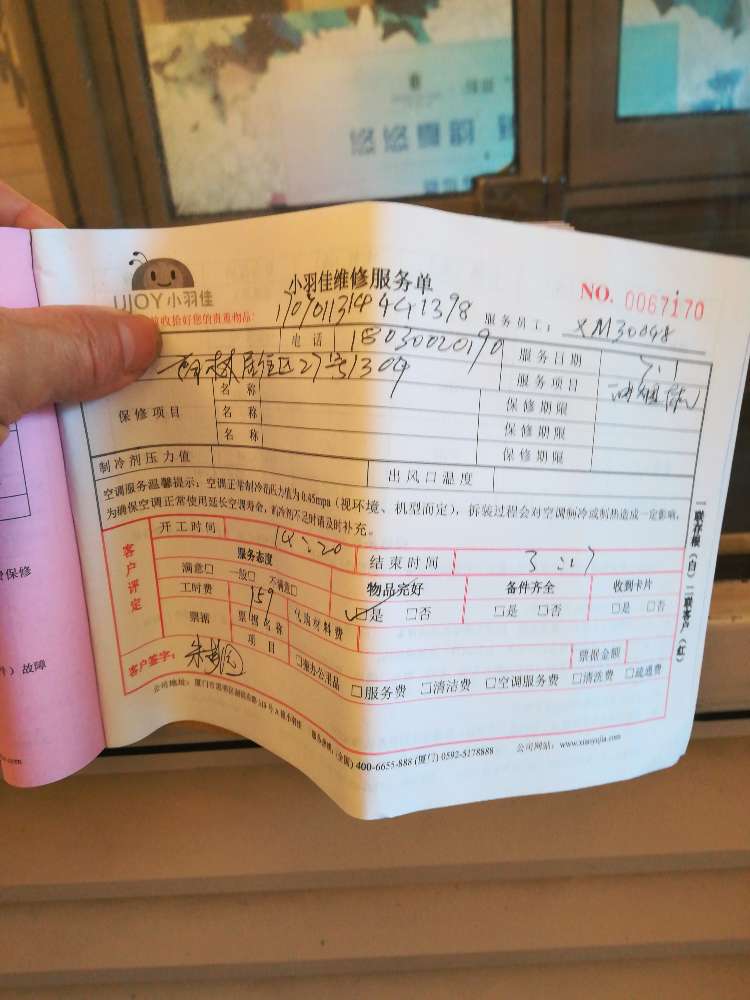 悠悠夏韵
UJOY小羽佳
小羽佳维修服务单
NO. 0067170
收拾好您的贵重物品:
服务员工: XM30048
电 话 18030020190
服务日期
居住区27号1304
服务项目
保修项目
名 称
保修期限
名 称
保修期限
名 称
保修期限
制冷剂压力值
出风口温度
空调服务温馨提示:空调正常制冷剂压力值为0.45mpa(视环境、机型而定),拆装过程会对空调制冷或制热造成一定影响,
为确保空调正常使用延长空调寿命,制冷剂不足时请及时补充。
客户评定
开工时间
结束时间
服务态度
满意□ 一般□ 不满意□
物品完好
☑是 □否
备件齐全
□是 □否
收到卡片
□是 □否
工时费 159
票据
票据名称
材料费
项 目
票据金额
□服务费 □清洁费 □空调服务费 □清洗费 □疏通费
客户签字:
(全国) 400-6655-888 (厦门) 0592-5178888
公司网站: www.xiaoyujia.com
一联存根(白)二联客户(红)
保修
故障